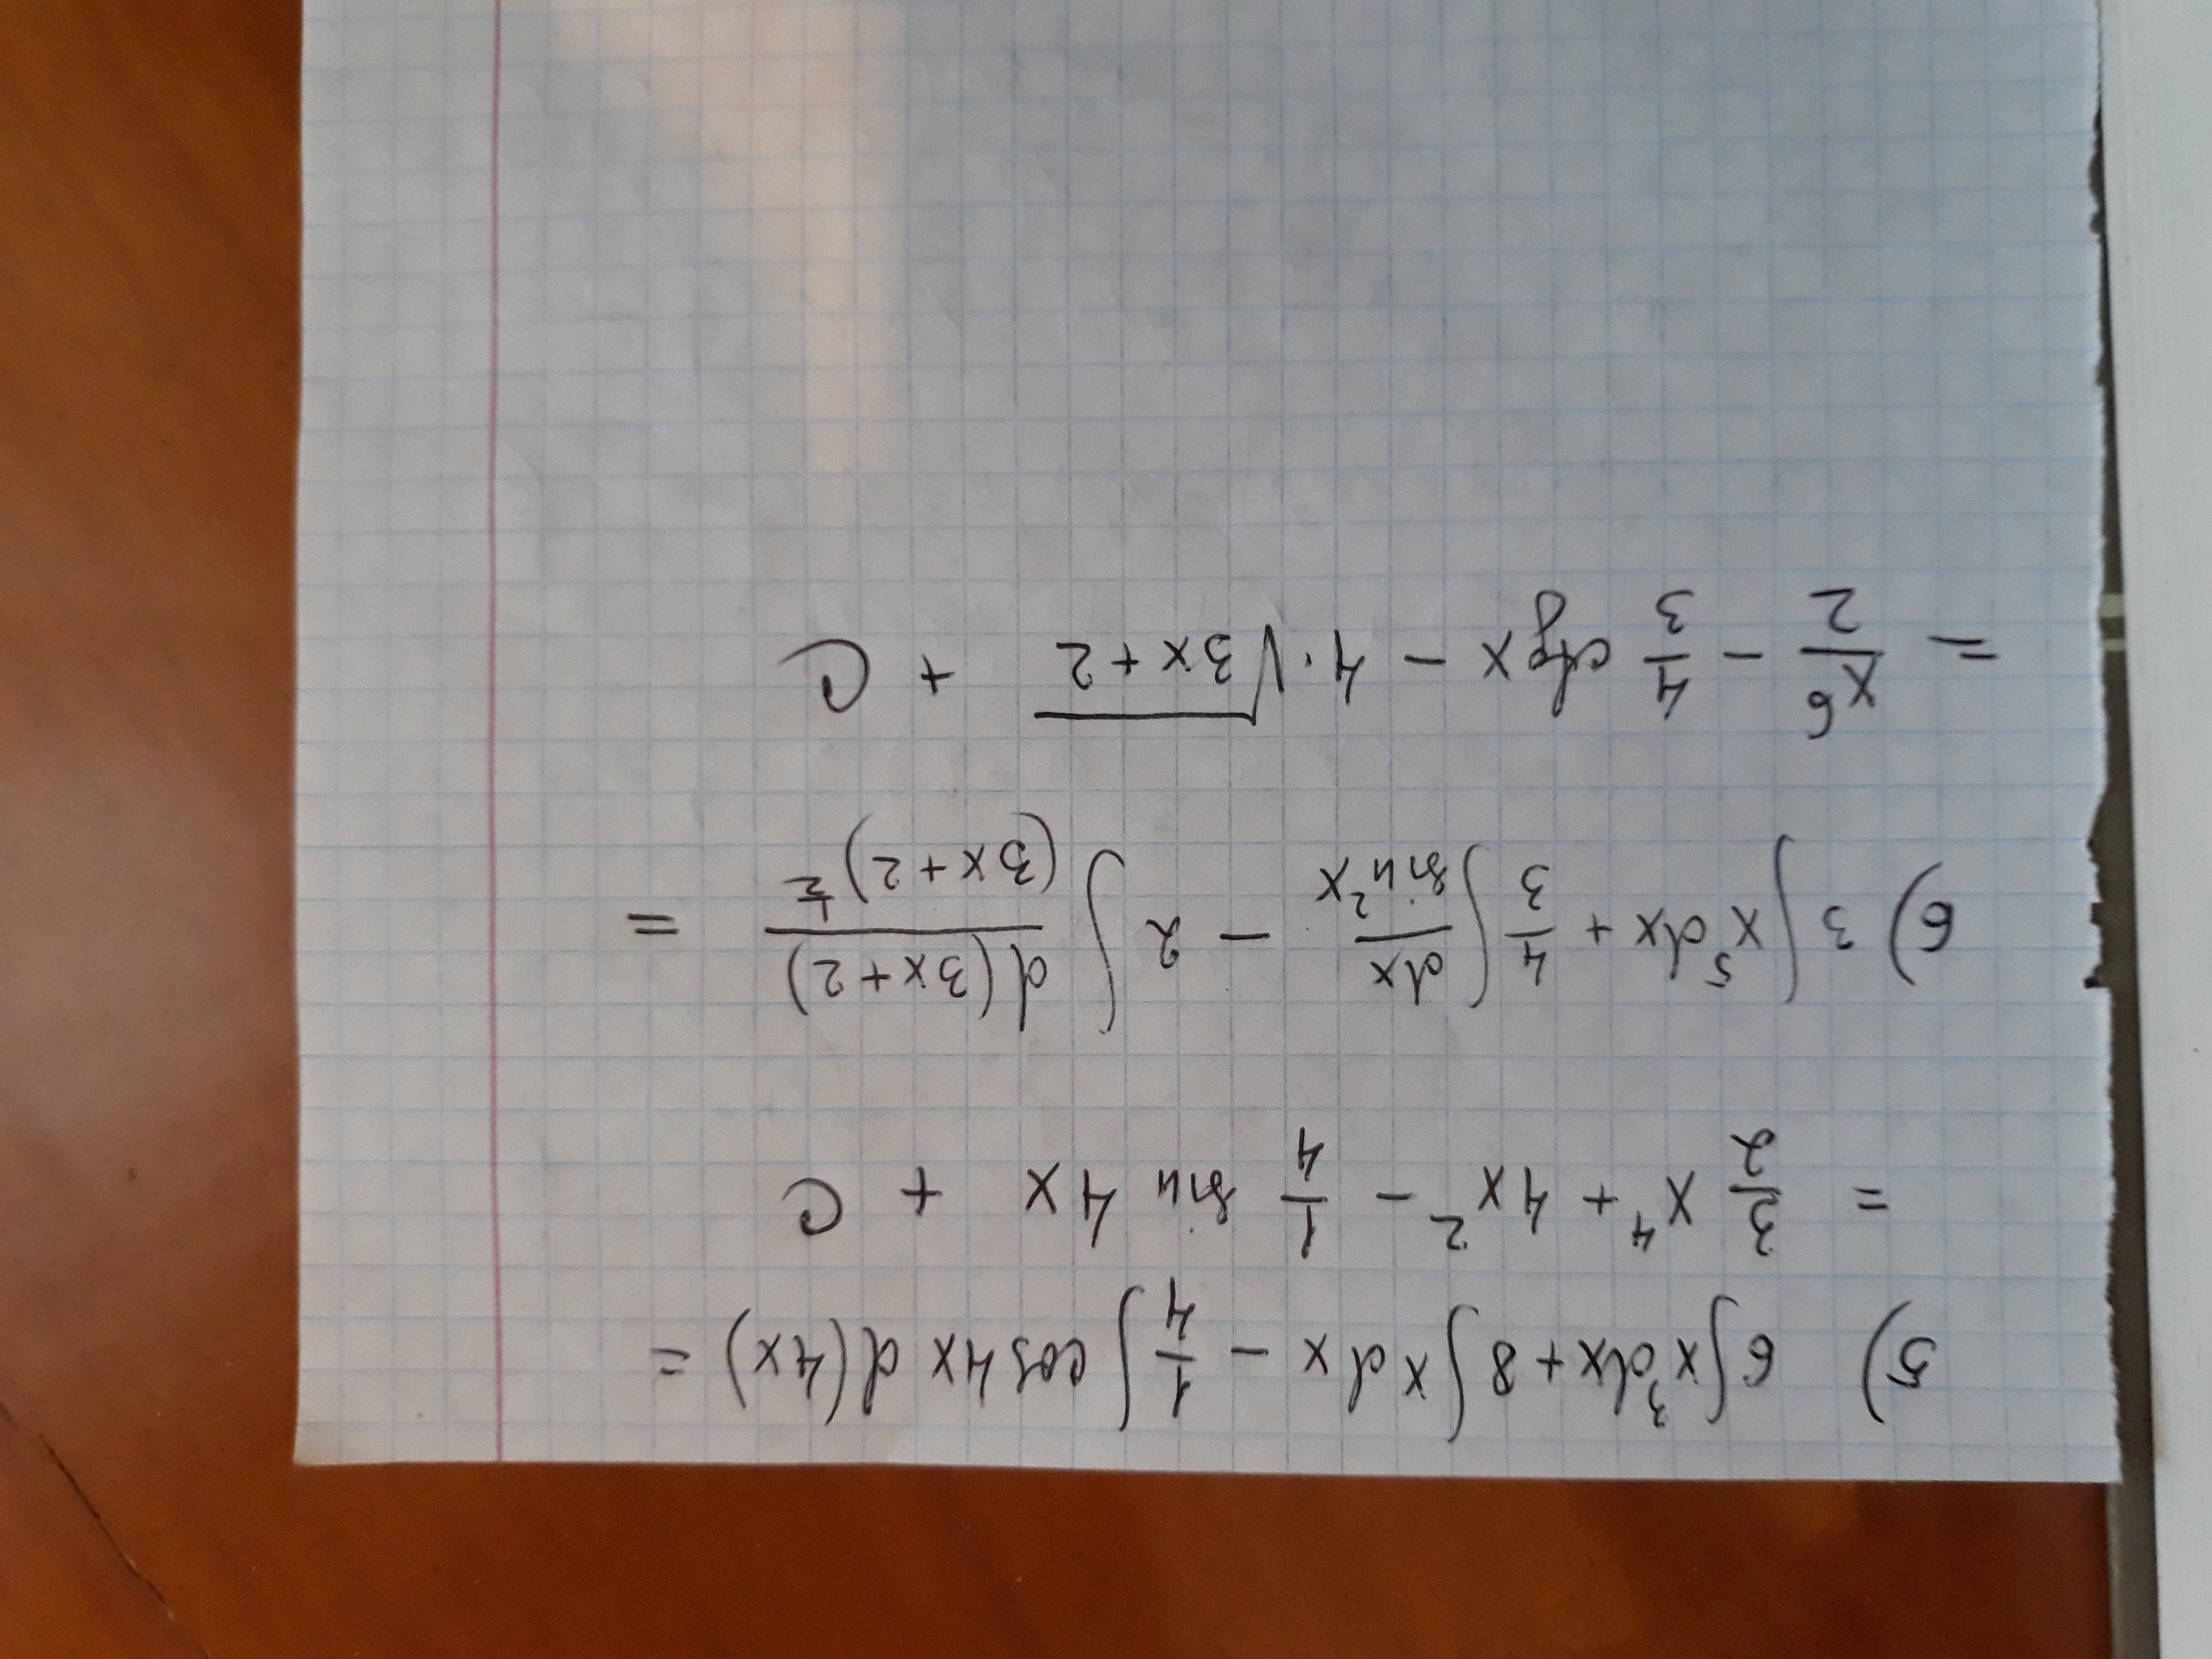 5) 6∫x³dx + 8∫x dx − 1/4 ∫cos 4x d(4x) =
= 3/2 x⁴ + 4x² − 1/4 sin 4x + C
6) 3∫x⁵dx + 4/3 ∫dx/sin²x − 2∫d(3x+2)/(3x+2)^(1/2) =
= x⁶/2 − 4/3 ctg x − 4·√(3x+2) + C